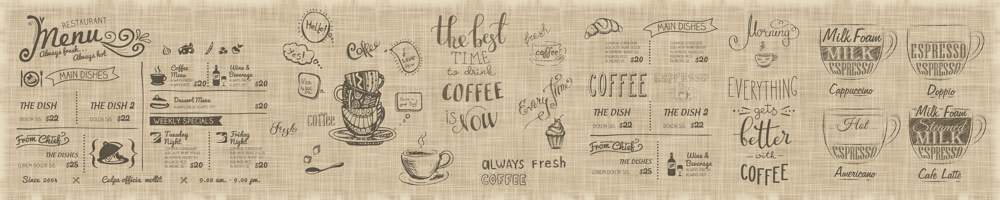 RESTAURANT
Menu
Always fresh...
Always hot
MAIN DISHES
THE DISH
DOLOR SIS $22
THE DISH 2
DOLOR SIS $22
From Chief
THE DISHES
LOREM DOLOR SIS $25
Since 2004
Culpa officia mollit
9.00 am. - 9.00 pm.
Coffee Menu
$20
Wine & Beverage
$20
Dessert Menu
$20
WEEKLY SPECIALS
Tuesday Night
$20
Friday Night
$20
Hello!
Yes!
Coffee
I love you
coffee
fresh
the best
TIME
to drink
COFFEE
is NOW
ALWAYS Fresh
COFFEE
fresh
coffee
Every Time
MAIN DISHES
$20
$20
COFFEE
ESPRESSO
THE DISH
DOLOR SIS $22
THE DISH 2
DOLOR SIS $22
From Chief
THE DISHES
LOREM DOLOR SIS $25
Wine & Beverage
$20
Morning
EVERYTHING
gets
better
- with -
COFFEE
Milk Foam
MILK
ESPRESSO
Cappuccino
ESPRESSO
Doppio
Hot
ESPRESSO
Americano
Milk Foam
Steamed
MILK
ESPRESSO
Cafe Latte